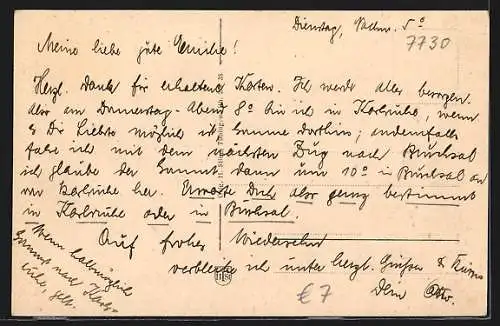 Dienstag, Nachm. 5°
7730
Meine liebe gute Emilie!
Herzl. Dank für erhaltene Karten. Ich werde alles besorgen.
also am Donnerstag-Abend 8° bin ich in Karlsruhe, wenn
es Dir Liebste möglich ist komme dorthin; andernfalls
fahre ich mit dem nächsten Zug nach Bruchsal
ich glaube der kommt dann um 10° in Bruchsal an
von Karlsruhe her. Erwarte Dich also ganz bestimmt
in Karlsruhe oder in Bruchsal.
Auf frohes Wiedersehn
verbleibe ich unter herzl. Grüßen & Küssen
Dein
Wenn halbmöglich
kommst nach Karls-
ruhe, gell.
€7